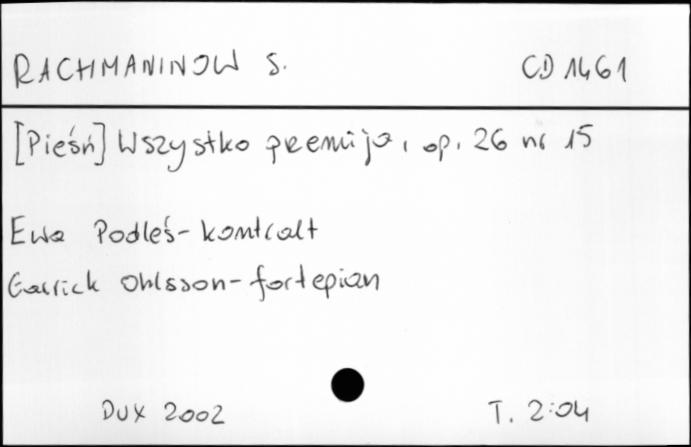 RACHMANINOW S. CD 1461
[Pieśń] Wszystko przemija, op. 26 nr 15
Ewa Podleś - kontralt
Garrick Ohlsson - fortepian
DUX 2002 T. 2:04